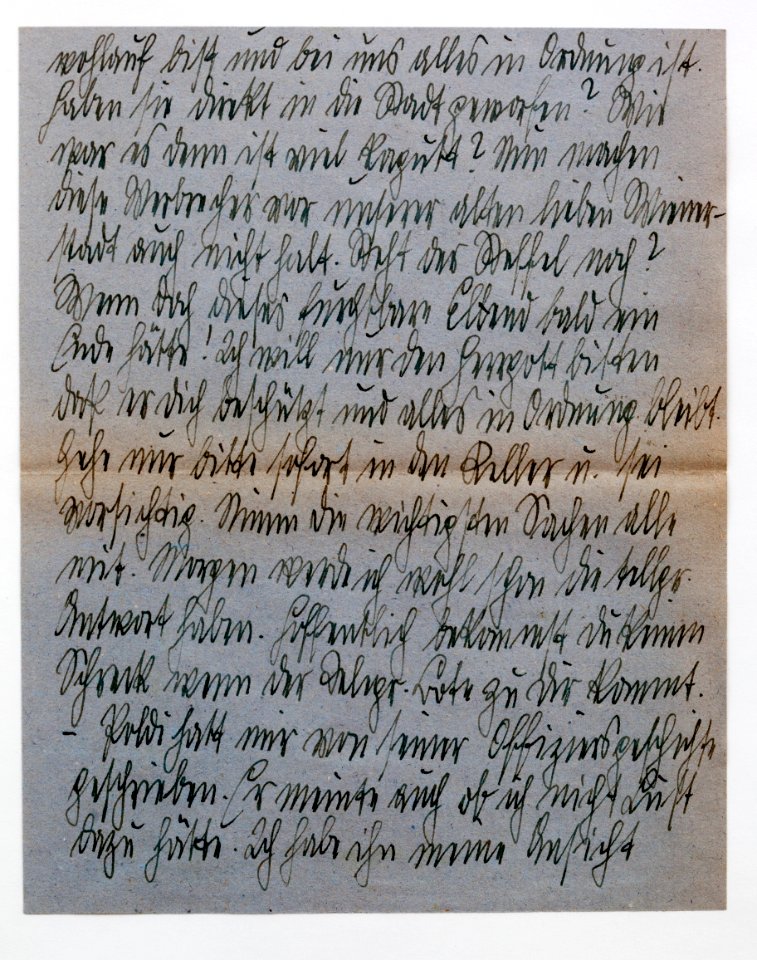 wohlauf bist und bei uns alles in Ordnung ist.
Haben sie direkt in die Stadt geworfen? Wie
war es denn ist viel kaputt? Nun machen
diese Verbrecher vor unserer alten lieben Wiener-
stadt auch nicht halt. Steht der Steffel noch?
Wenn doch dieses furchtbare Elend bald ein
Ende hätte! Ich will nur den Herrgott bitten
daß er dich beschützt und alles in Ordnung bleibt.
Gehe nur bitte sofort in den Keller u. sei
vorsichtig. Nimm die wichtigsten Sachen alle
mit. Morgen werde ich wohl schon die tellgr.
Antwort haben. Hoffentlich bekommst du keinen
Schreck wenn der Telegr. Bote zu dir kommt.
- Poldi hatt mir von seiner Offiziersgeschichte
geschrieben. Er meinte auch ob ich nicht Lust
dazu hätte. Ich habe ihn meine Ansicht